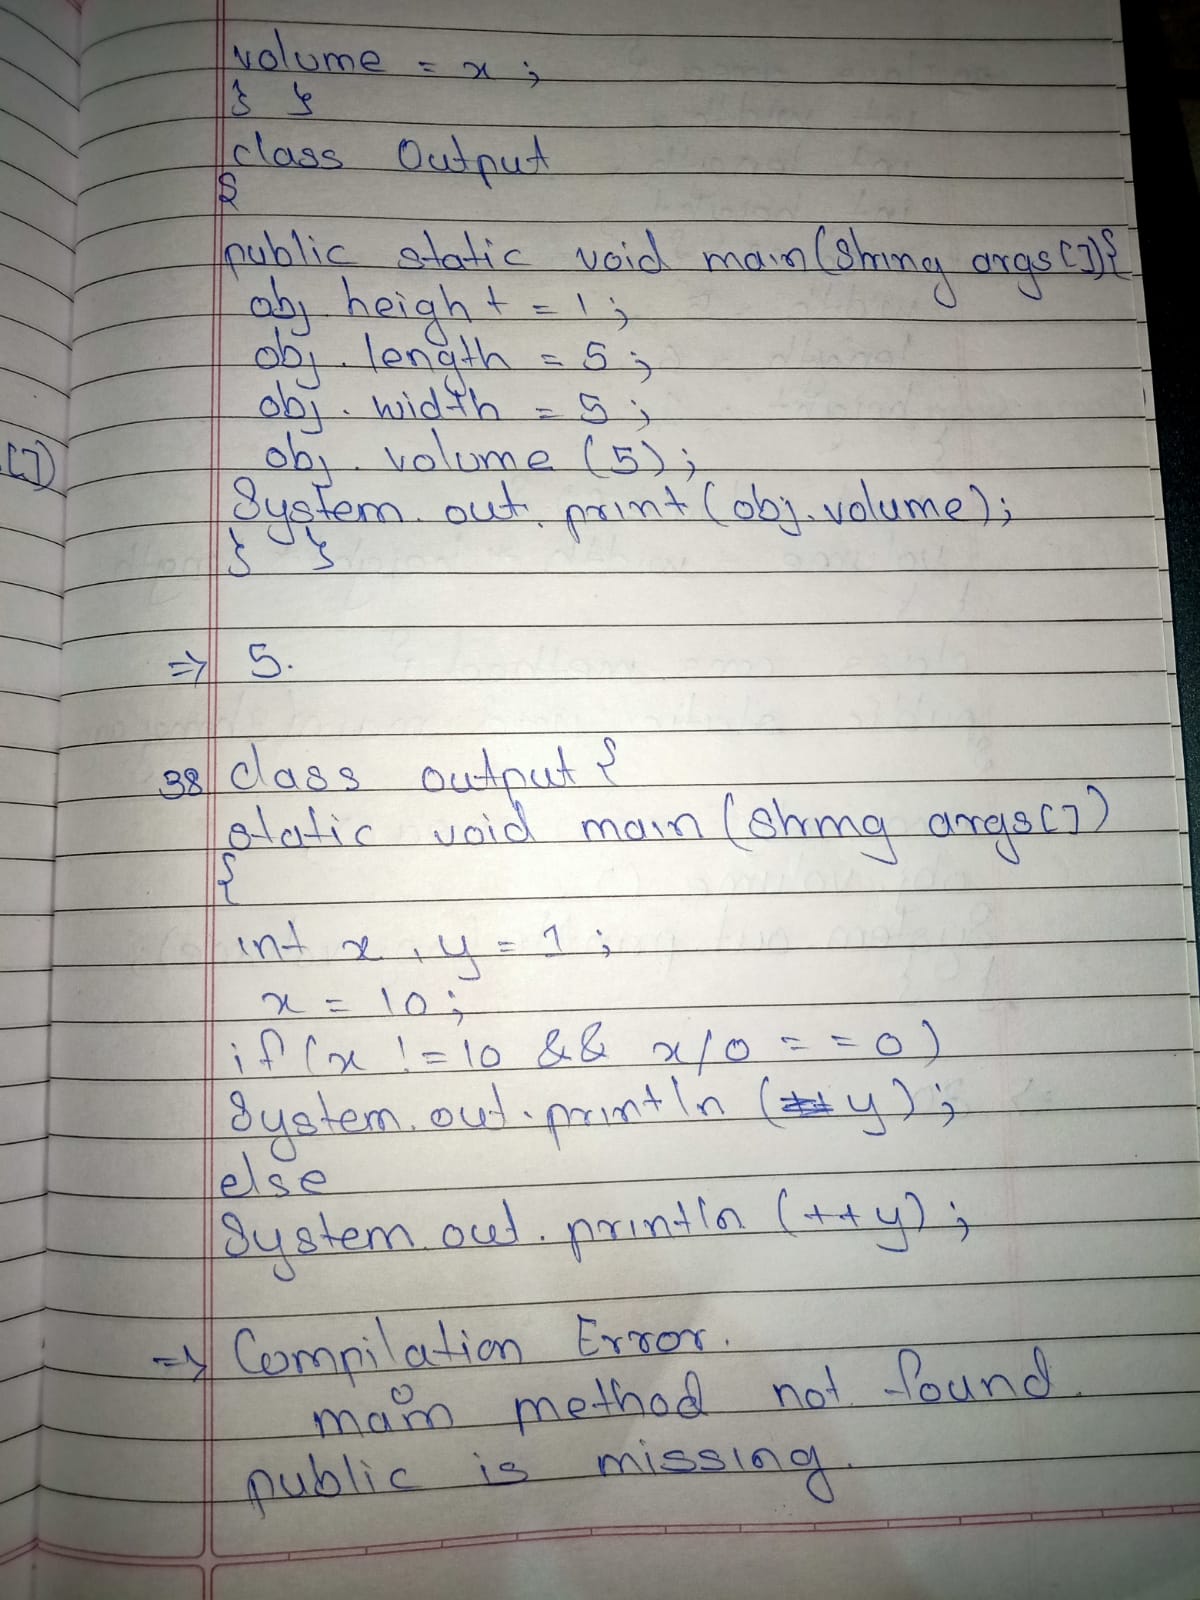 volume = x ;
} }
class Output
{
public static void main(String args[]){
obj. height = 1 ;
obj . length = 5 ;
obj . width = 5 ;
[]) obj . volume (5) ;
System. out. print (obj.volume) ;
} }
⇒ 5.
38 class output {
static void main (String args[])
{
int x , y = 1 ;
x = 10 ;
if (x != 10 && x/0 = = 0)
System. out . println (y) ;
else
System. out . println (++y) ;
⇒ Compilation Error.
main method not found.
public is missing.